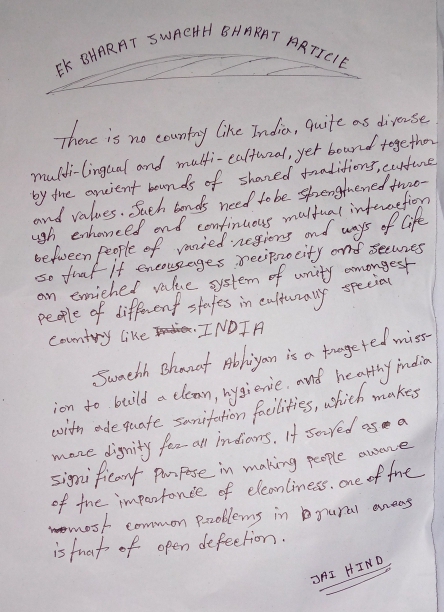 EK BHARAT SWACHH BHARAT ARTICLE
There is no country like India, Quite as diverse
multi-lingual and multi-cultural, yet bound together
by the ancient bounds of shared traditions, culture
and values. Such bonds need to be strengthened thro-
ugh enhanced and continuous multual interaction
between people of varied regions and ways of life
so that it encourages reciprocity and secures
an enriched value system of unity amongest
people of different states in culturally special
country like INDIA
Swachh Bharat Abhiyan is a trageted miss-
ion to build a clean, hygienic. and healthy india
with adequate sanitation facilities, which makes
more dignity for all indians. It served as a
significant purpose in making people aware
of the importance of cleanliness. one of the
most common problems in rural areas
is that of open defection.
JAI HIND